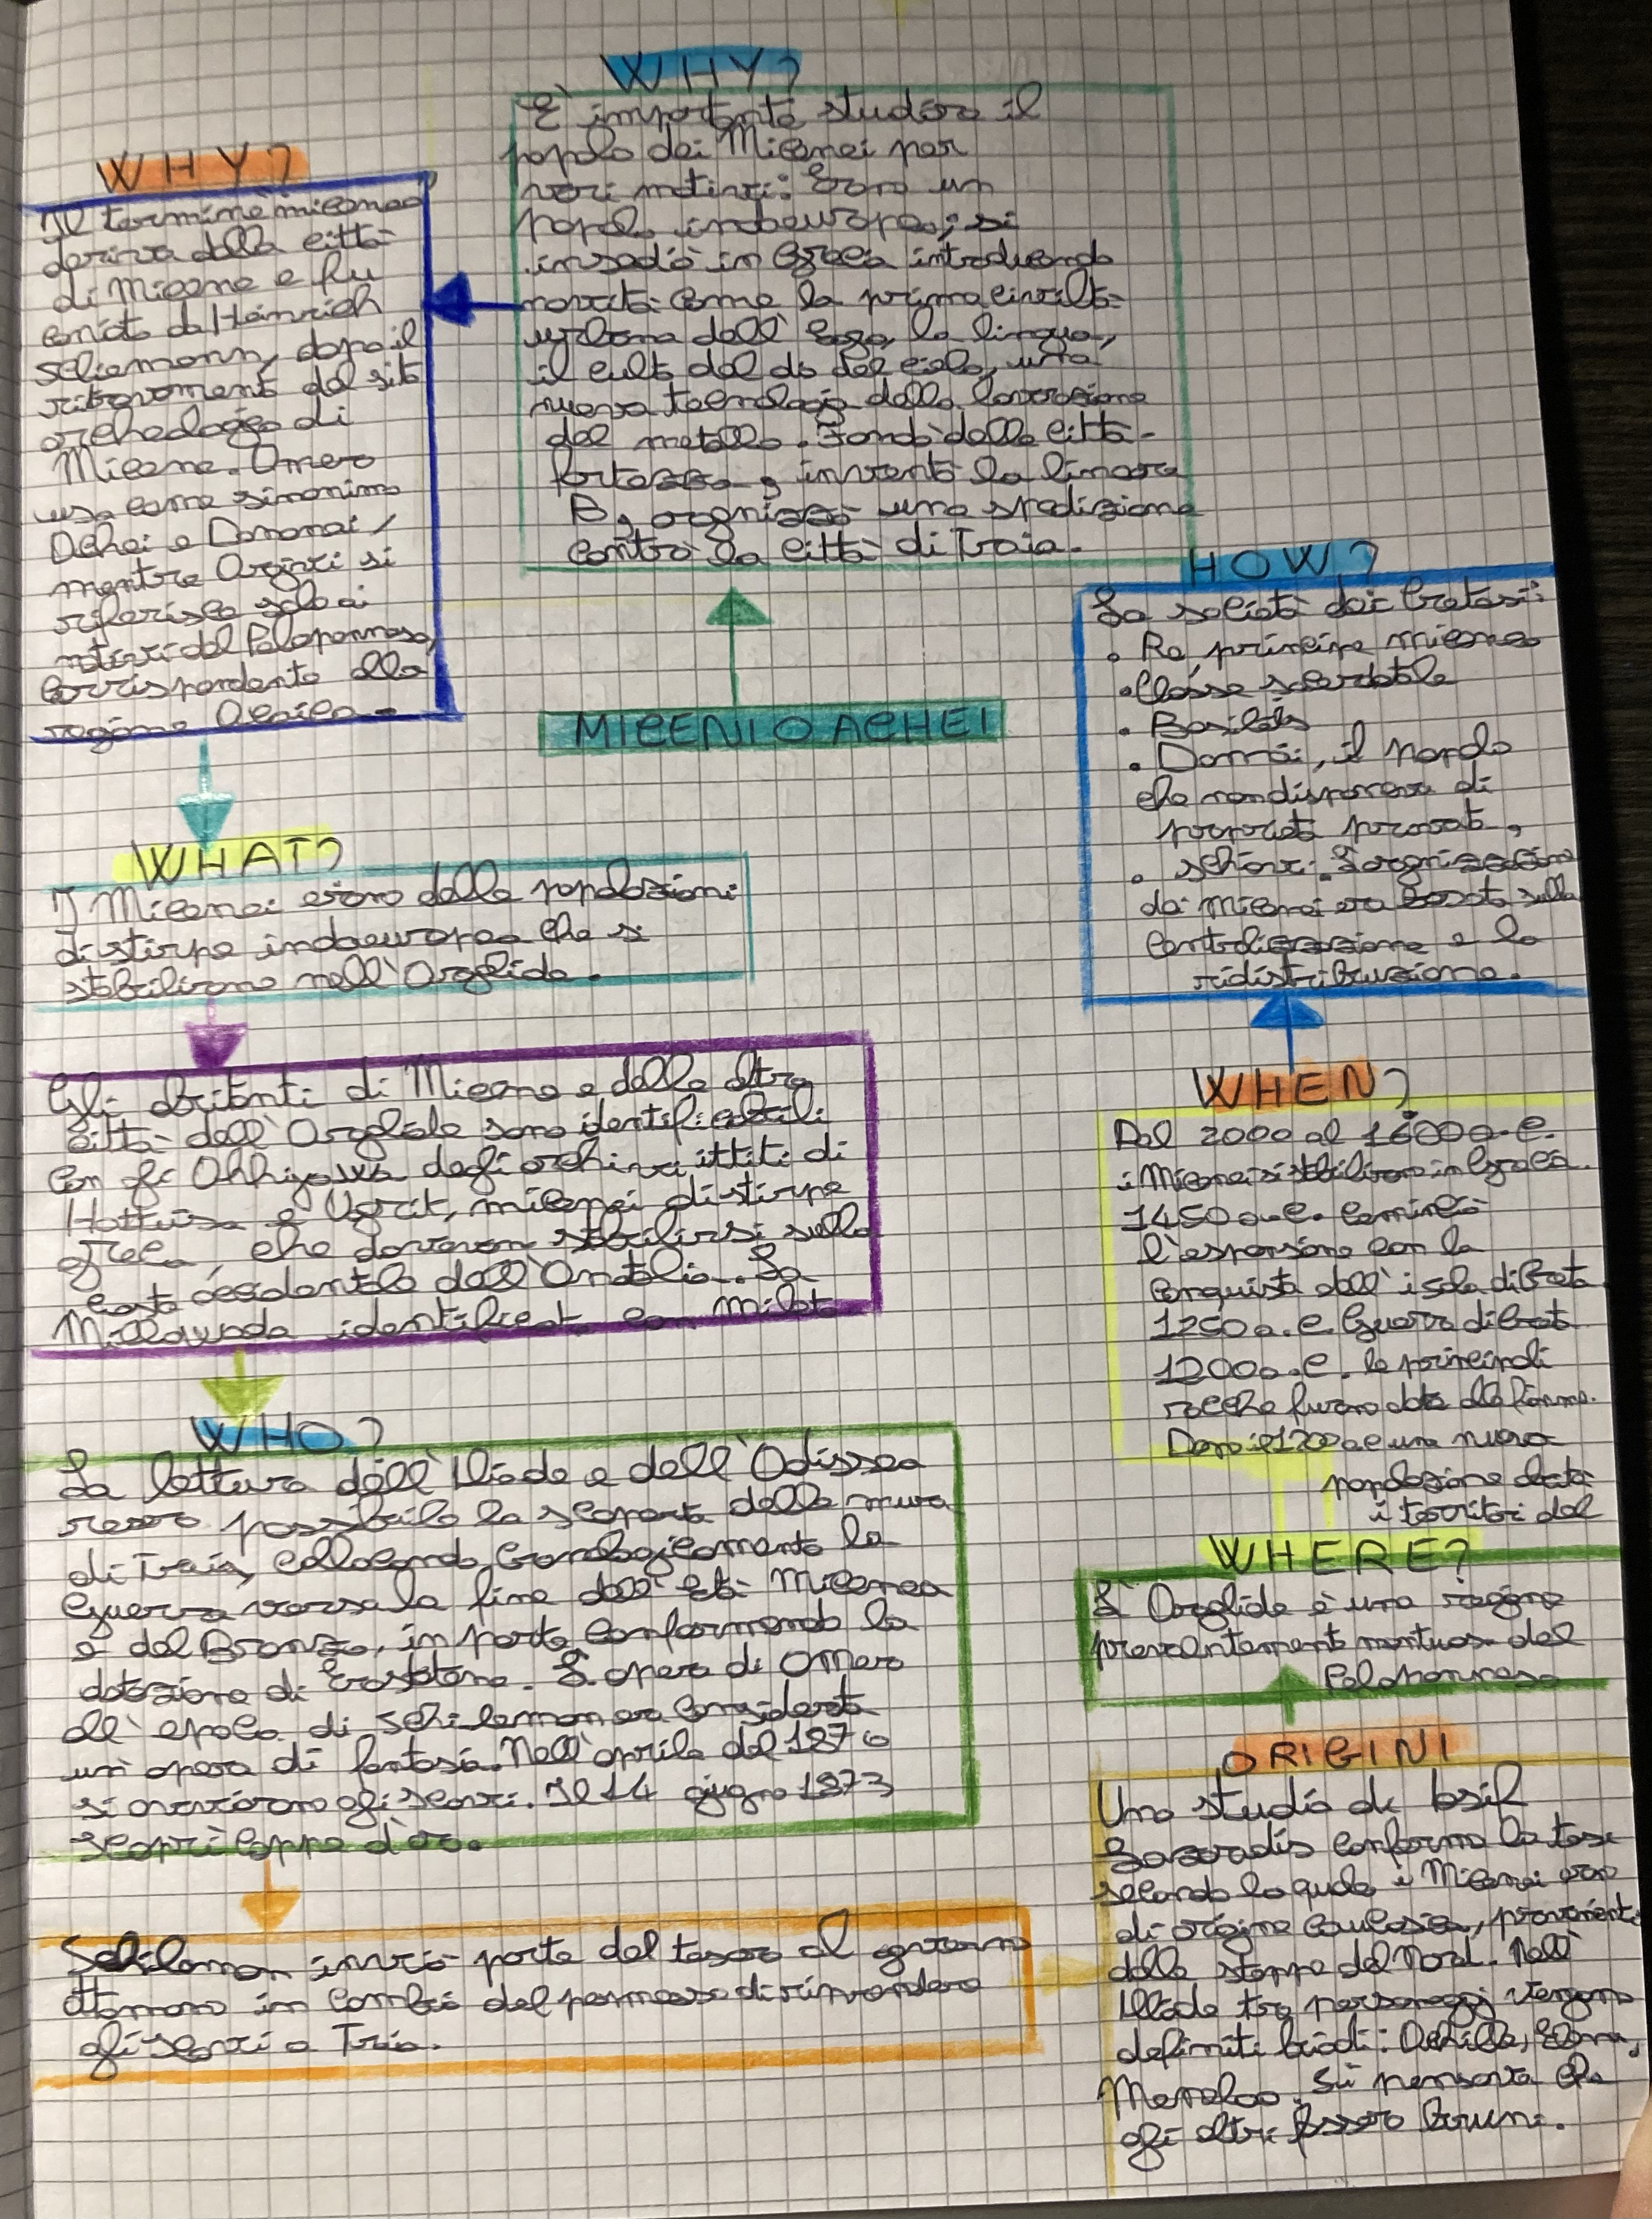 WHY?
È importante studiare il
popolo dei Micenei per
vari motivi: Erano un
popolo indoeuropeo; si
insediò in Grecia introducendo
novità come la prima civiltà
urbana dell'Egeo, la lingua,
il culto del dio del cielo, una
nuova tecnologia della lavorazione
del metallo. Fondò delle città-
fortezza, inventò la lineare
B, organizzò una spedizione
contro la città di Troia.
WHY?
Il termine miceneo
deriva dalla città
di Micene e fu
coniato da Heinrich
Scliemann, dopo il
ritrovamento del sito
archeologico di
Micene. Omero
usa come sinonimo
Achei e Danaai,
mentre Argivi si
riferisce solo ai
nativi del Peloponneso,
corrispondente alla
regione Acaica.
MICENI O ACHEI
HOW?
La società dei Cretesi:
• Re, principe miceneo
• Classe sacerdotale
• Basilèis
• Damòi, il popolo
che non disponeva di
proprietà privata,
• schiavi. L'organizzazione
dei Micenei era basata sulla
centralizzazione e la
ridistribuzione.
WHAT?
I Micenei erano delle popolazioni
di stirpe indoeuropea che si
stabilirono nell'Argolide.
Gli abitanti di Micene e delle altre
città dell'Argolide sono identificabili
con gli Ahhiyawa degli archivi ittiti di
Hattusa e Ugarit, micenei di stirpe
greca, che dovevano stabilirsi sulla
costa occidentale dell'Anatolia. La
Millawanda identificata con Mileto
WHEN?
Dal 2000 al 1600 a.C.
i Micenei si stabilirono in Grecia.
1450 a.C. cominciò
l'espansione con la
conquista dell'isola di Creta
1250 a.C. Guerra di Creta
1200 a.C. le principali
rocche furono date alle fiamme.
Dopo il 1200 a.C una nuova
popolazione
i territori del
WHO?
La lettura dell'Iliade e dell'Odissea
rese possibile la scoperta delle mura
di Troia, collocando cronologicamente la
Guerra verso la fine dell'Età Micenea
e del Bronzo, in parte confermando la
datazione di Eratostene. L'opera di Omero
all'epoca di Schliemann era considerata
un'opera di fantasia. Nell'aprile del 1870
si avviarono gli scavi. Il 14 giugno 1873
scoprì coppe d'oro.
WHERE?
L'Argolide è una regione
prevalentemente montuosa del
Peloponneso
Schliemann inviò parte del tesoro al governo
ottomano in cambio del permesso di riprendere
gli scavi a Troia.
ORIGINI
Uno studio di Iosif
Lazaridis conferma la tesi
secondo la quale i Micenei erano
di origine caucasica, provenienti
dalle steppe del Nord. Nell'
Iliade tre personaggi vengono
definiti biondi: Achille, Elena,
Menelao. Si pensava che
gli altri fossero bruni.